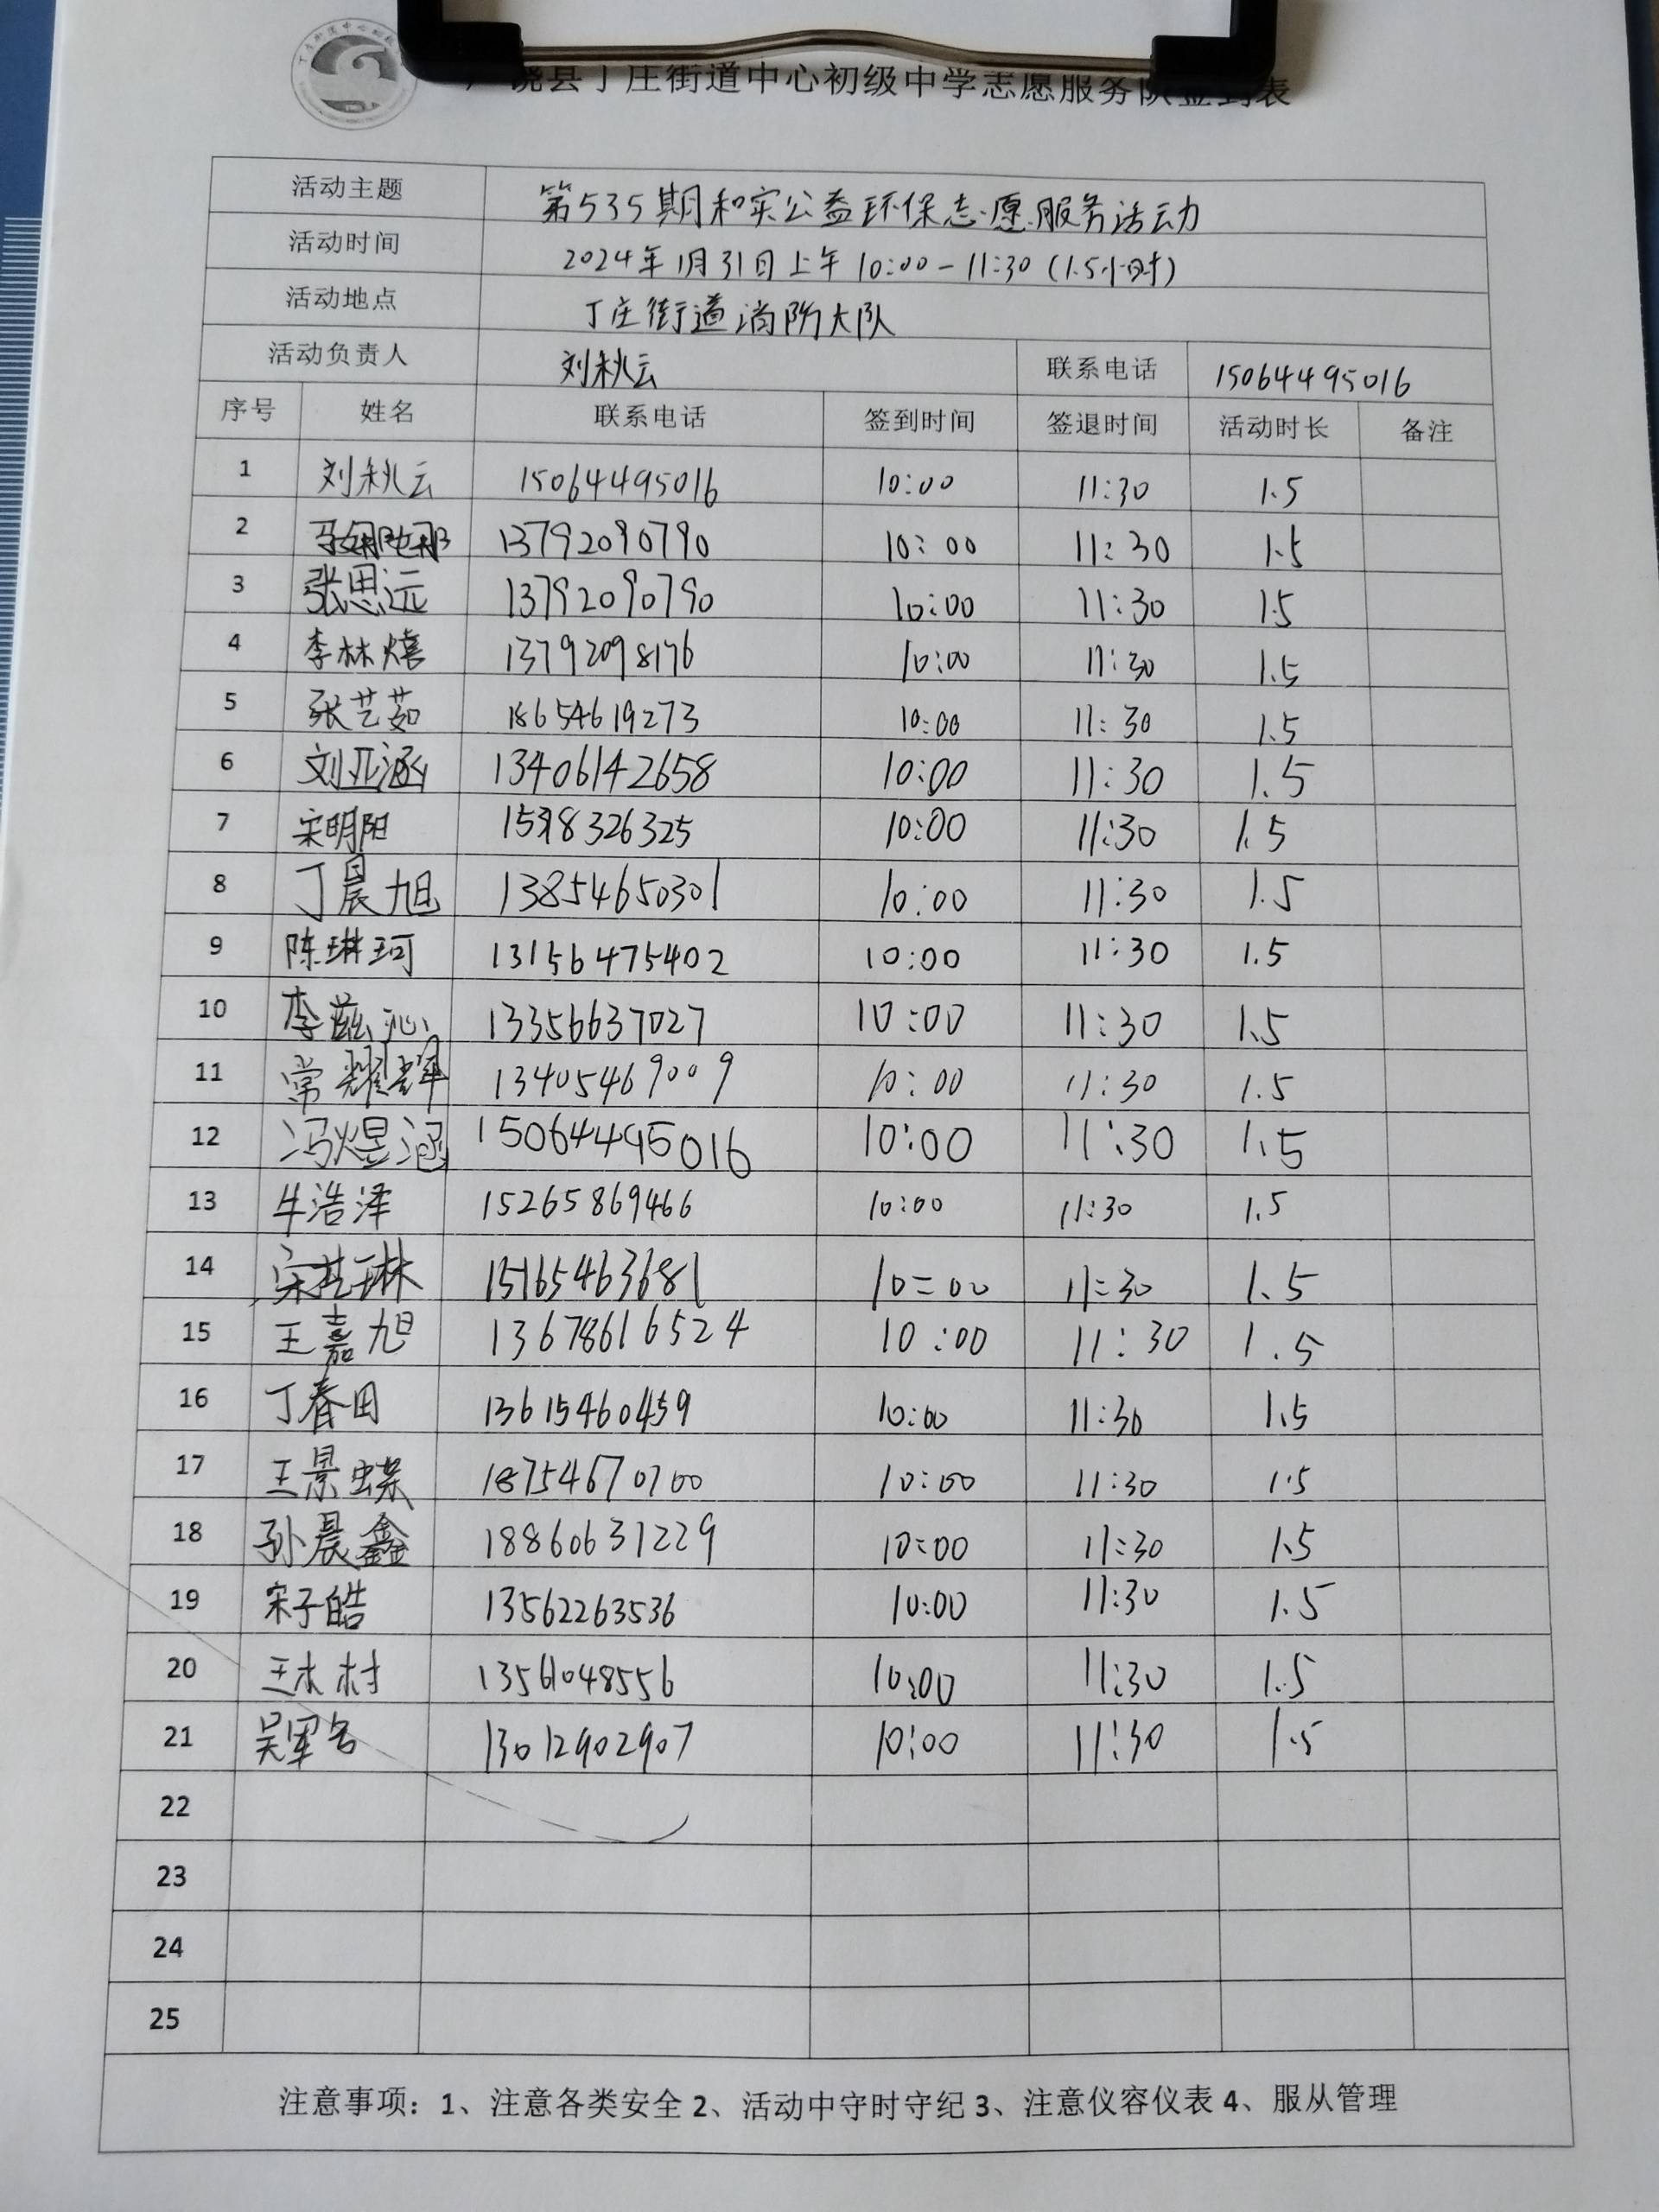 广饶县丁庄街道中心初级中学志愿服务队签到表
活动主题 第535期和实公益环保志愿服务活动
活动时间 2024年1月31日上午10:00-11:30(1.5小时)
活动地点 丁庄街道消防大队
活动负责人 刘秋云 联系电话 15064495016
序号 姓名 联系电话 签到时间 签退时间 活动时长 备注
1 刘秋云 15064495016 10:00 11:30 1.5
2 13792090790 10:00 11:30 1.5
3 张思远 13792090790 10:00 11:30 1.5
4 李林熺 13792098176 10:00 11:30 1.5
5 张艺茹 18654619273 10:00 11:30 1.5
6 刘亚涵 13406142658 10:00 11:30 1.5
7 宋明阳 10:00 11:30 1.5
8 丁晨旭 13854650301 10:00 11:30 1.5
9 陈琳珂 13156475402 10:00 11:30 1.5
10 李兹沁 13356637027 10:00 11:30 1.5
11 常耀辉 13405469009 10:00 11:30 1.5
12 冯煜涵 15064495016 10:00 11:30 1.5
13 牛浩泽 15265869466 10:00 11:30 1.5
14 宋艺琳 15165463681 10:00 11:30 1.5
15 王嘉旭 13678616524 10:00 11:30 1.5
16 丁春田 13615460459 10:00 11:30 1.5
17 王景蝶 18754670700 10:00 11:30 1.5
18 孙晨鑫 18860631229 10:00 11:30 1.5
19 宋子皓 13562263536 10:00 11:30 1.5
20 王木村 13561048556 10:00 11:30 1.5
21 吴军名 13012902907 10:00 11:30 1.5
22
23
24
25
注意事项：1、注意各类安全2、活动中守时守纪3、注意仪容仪表4、服从管理